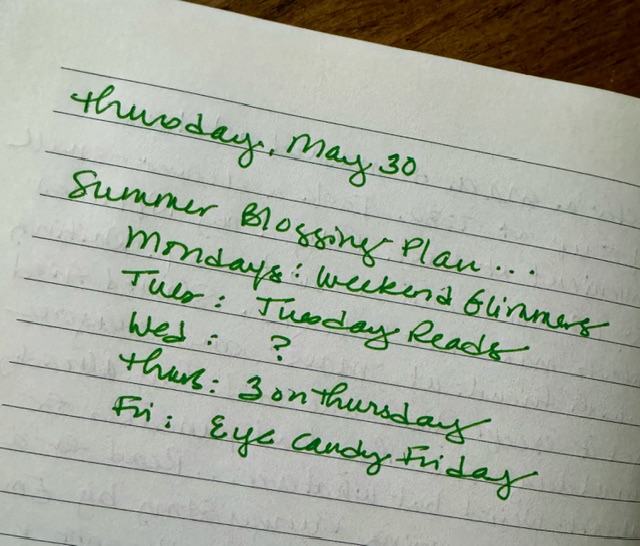 Thursday, May 30
Summer Blogging Plan...
Mondays: Weekend Glimmers
Tues: Tuesday Reads
Wed: ?
Thurs: 3 on Thursday
Fri: Eye Candy Friday